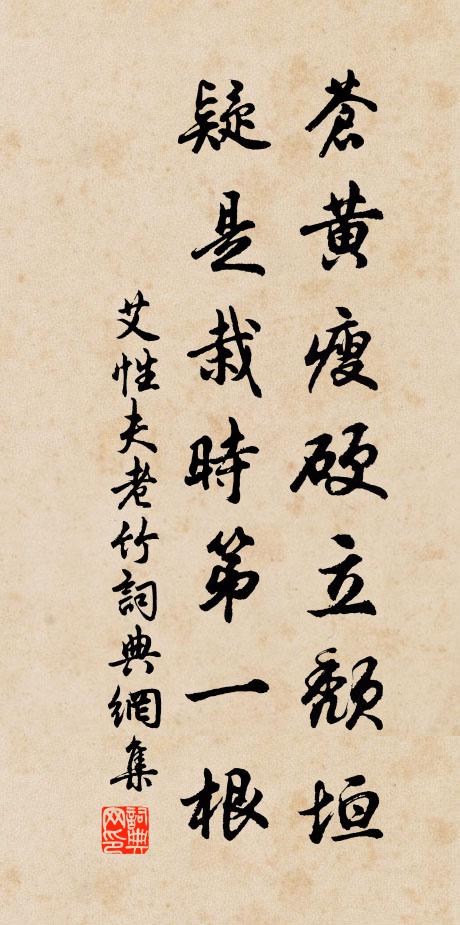 蒼黃瘦硬立頹垣
疑是栽時第一根
艾性夫老竹詞典網集
詞典网印